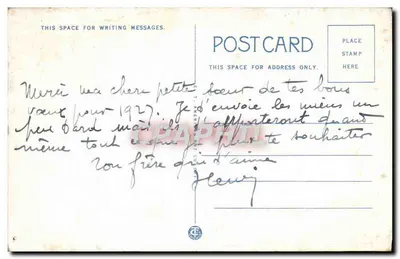 THIS SPACE FOR WRITING MESSAGES.
POSTCARD
THIS SPACE FOR ADDRESS ONLY.
PLACE
STAMP
HERE
Merci ma chère petite sœur de tes bons
vœux pour 1927. Je t'envoie les miens un
peu tard mais ils t'apporteront quand
même tout ce que je peux te souhaiter
Ton frère qui t'aime
Henri